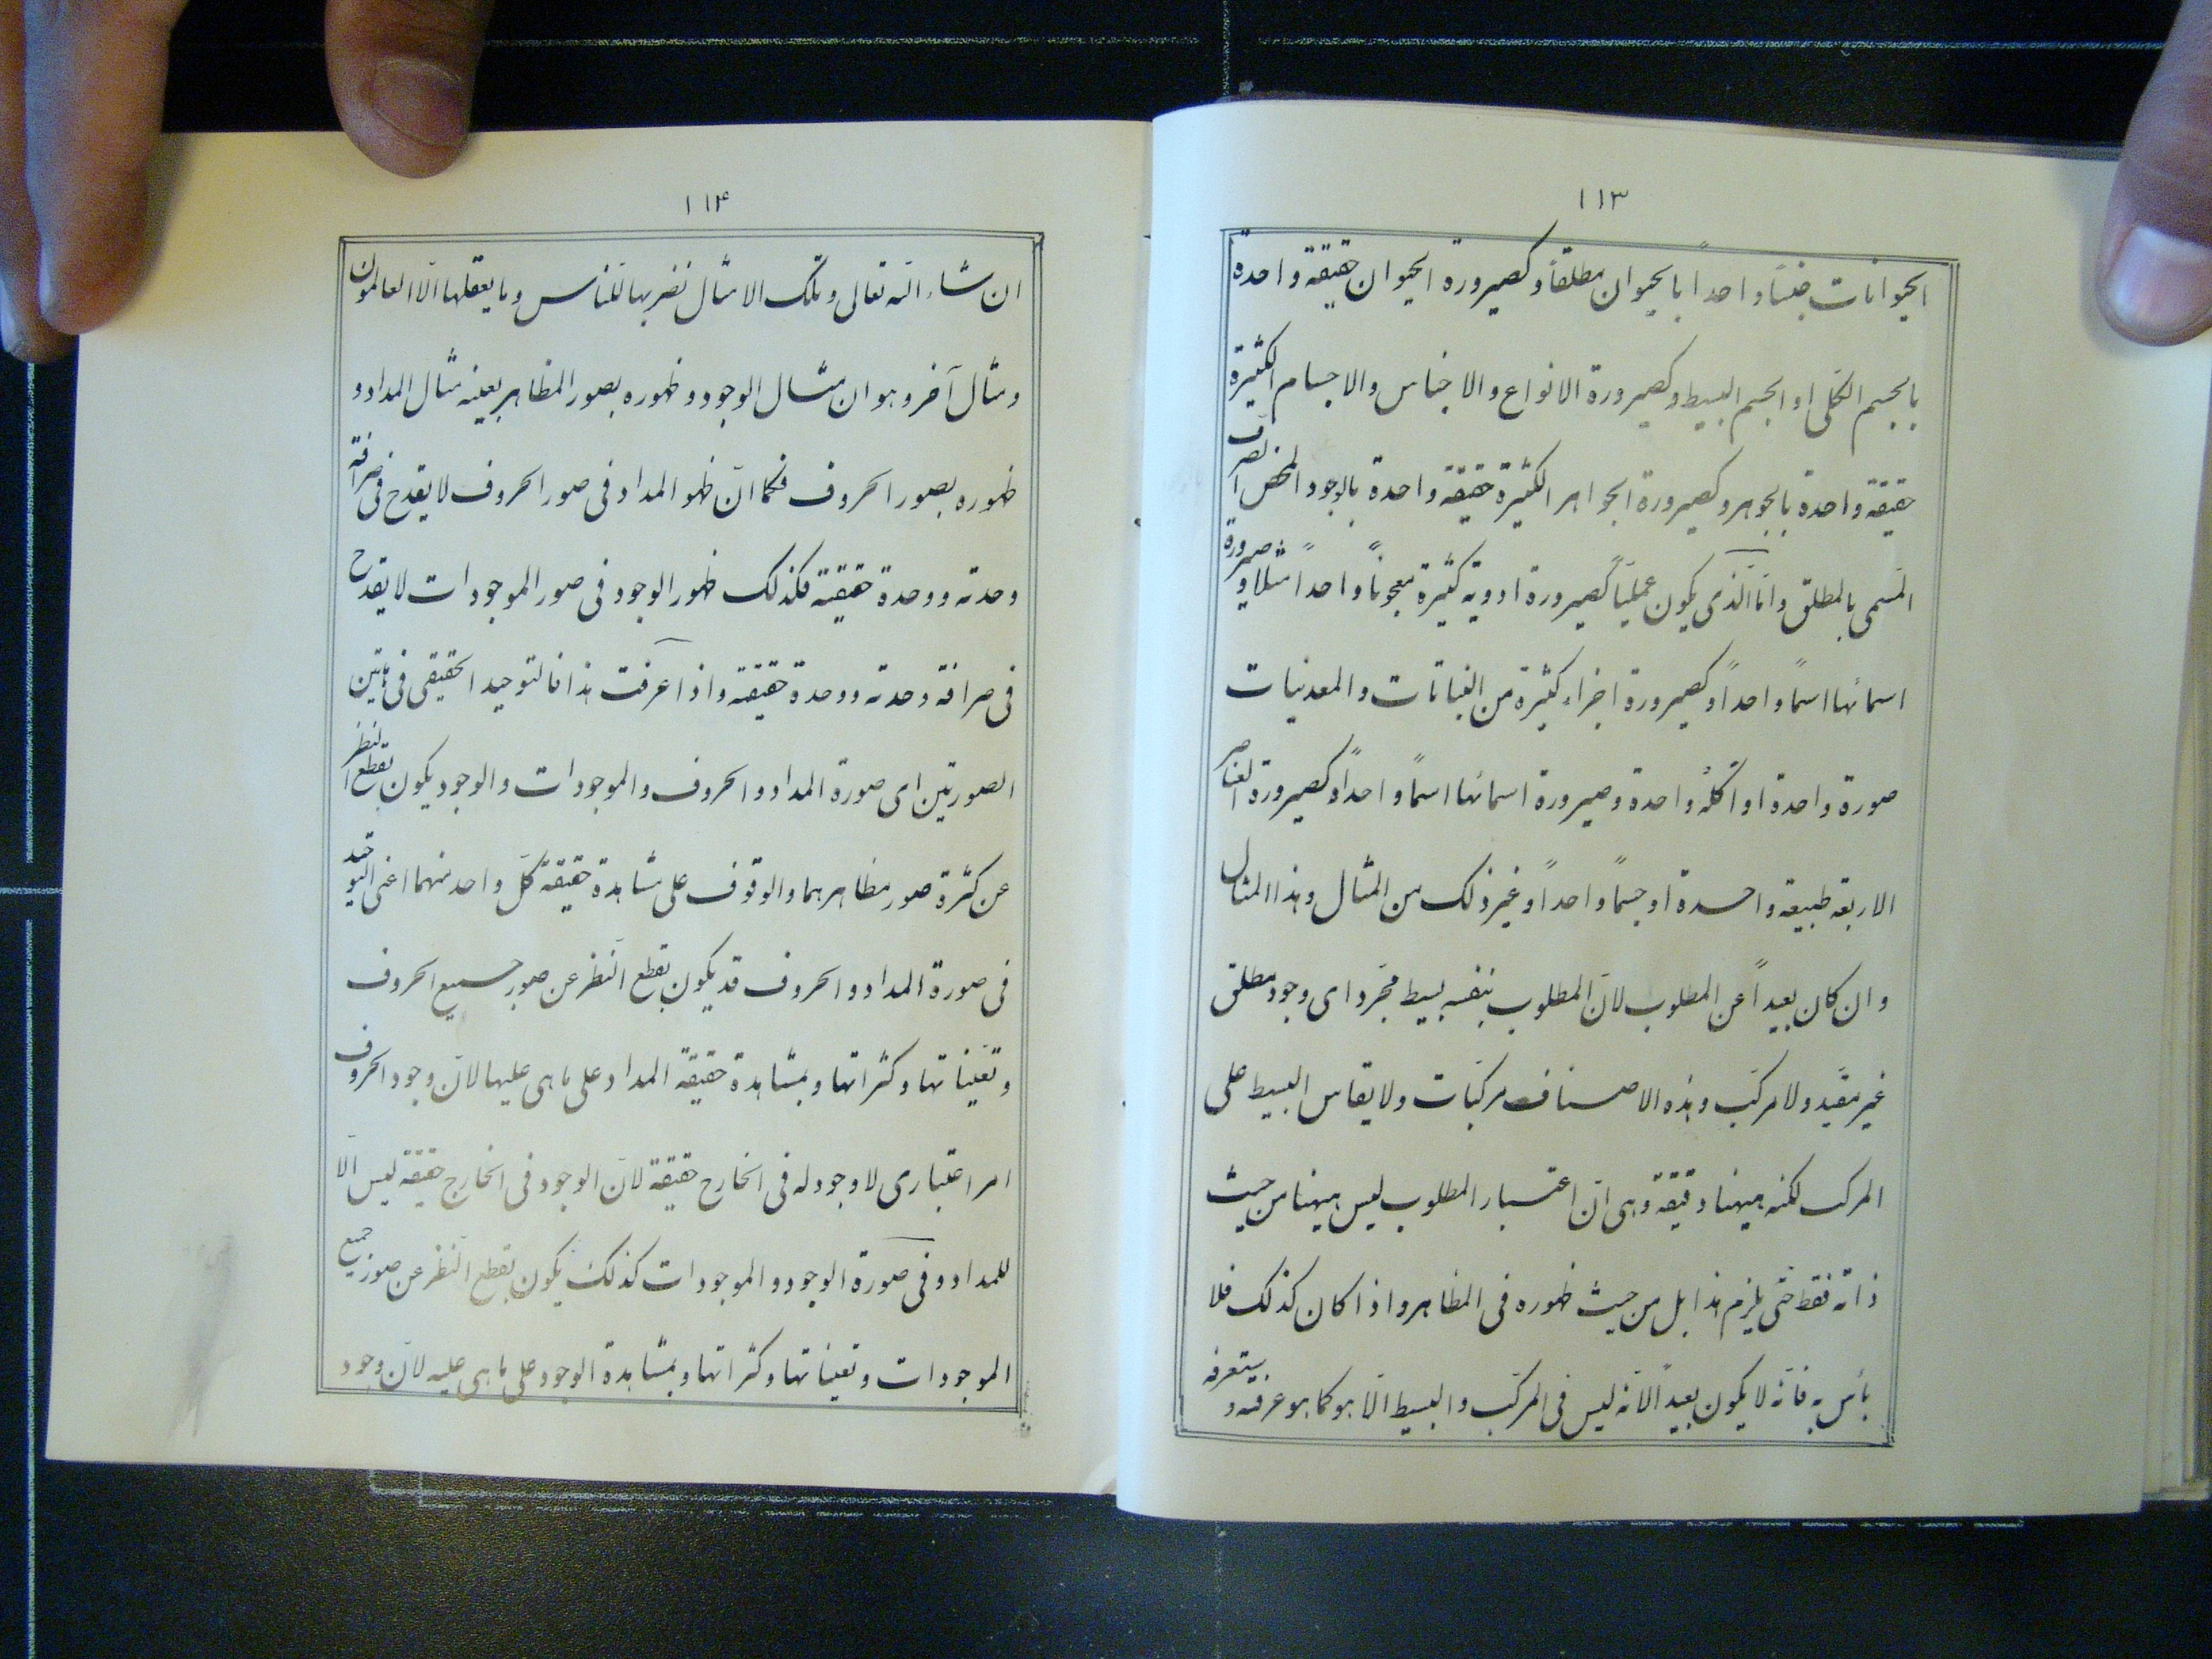 ١١٣
الحیوانات جنساً واحداً بالحیوان مطلقاً و کصیرورة الحیوان حقیقة واحدة
بالجسم الکلّی او الجسم البسیط و کصیرورة الانواع والاجناس والاجسام الکثیرة
حقیقة واحدة بالجوهر و کصیرورة الجواهر الکثیرة حقیقة واحدة بالوجود المحض الصرف
المسمّی بالمطلق وامّا الّذی یکون عملیّاً کصیرورة ادویة کثیرة معجوناً واحداً مثلا و صیرورة
اسمائها اسماً واحداً و کصیرورة اجزاء کثیرة من النباتات والمعدنیات
صورة واحدة او اکلة واحدة وصیرورة اسمائها اسماً واحداً و کصیرورة العناصر
الاربعة طبیعة واحدة او جسماً واحداً و غیر ذلک من المثال و هذا المثال
وان کان بعیداً عن المطلوب لانّ المطلوب بنفسه بسیط مجرّد ای وجود مطلق
غیر مقیّد ولا مرکّب و هذه الاصناف مرکّبات ولا یقاس البسیط علی
المرکب لکنه هیهنا دقیقة وهی انّ اعتبار المطلوب لیس هیهنا من حیث
ذاته فقط حتّی یلزم هذا بل من حیث ظهوره فی المظاهر و اذا کان کذلک فلا
بأس به فانّه لا یکون بعیداً لانّه لیس فی المرکّب والبسیط الّا هو کما هو عرفته و ستعرفه
١١۴
ان شاء الله تعالی و تلک الامثال نضربها للنّاس وما یعقلها الّا العالمون
و مثال آخر و هو ان مثال الوجود و ظهوره بصور المظاهر بعینه مثال المداد و
ظهوره بصور الحروف فکما انّ ظهو المداد فی صور الحروف لا یقدح فی صرافة
وحدته و وحدة حقیقته فکذلک ظهور الوجود فی صور الموجودات لا یقدح
فی صرافة وحدته و وحدة حقیقته و اذا عرفت هذا فالتوحید الحقیقی فی هاتین
الصورتین ای صورة المداد و الحروف والموجودات والوجود یکون بقطع النظر
عن کثرة صور مظاهرهما والوقوف علی مشاهدة حقیقة کلّ واحد منهما اعنی التوحید
فی صورة المداد و الحروف قد یکون بقطع النّظر عن صور جمیع الحروف
و تعیّناتها و کثراتها و بمشاهدة حقیقة المداد علی ما هی علیها لانّ وجود الحروف
امر اعتباری لا وجود له فی الخارج حقیقة لانّ الوجود فی الخارج حقیقة لیس الّا
للمداد و فی صورة الوجود و الموجودات کذلک یکون بقطع النّظر عن صور جمیع
الموجودات و تعیناتها و کثراتها و بمشاهدة الوجود علی ما هی علیه لانّ وجود